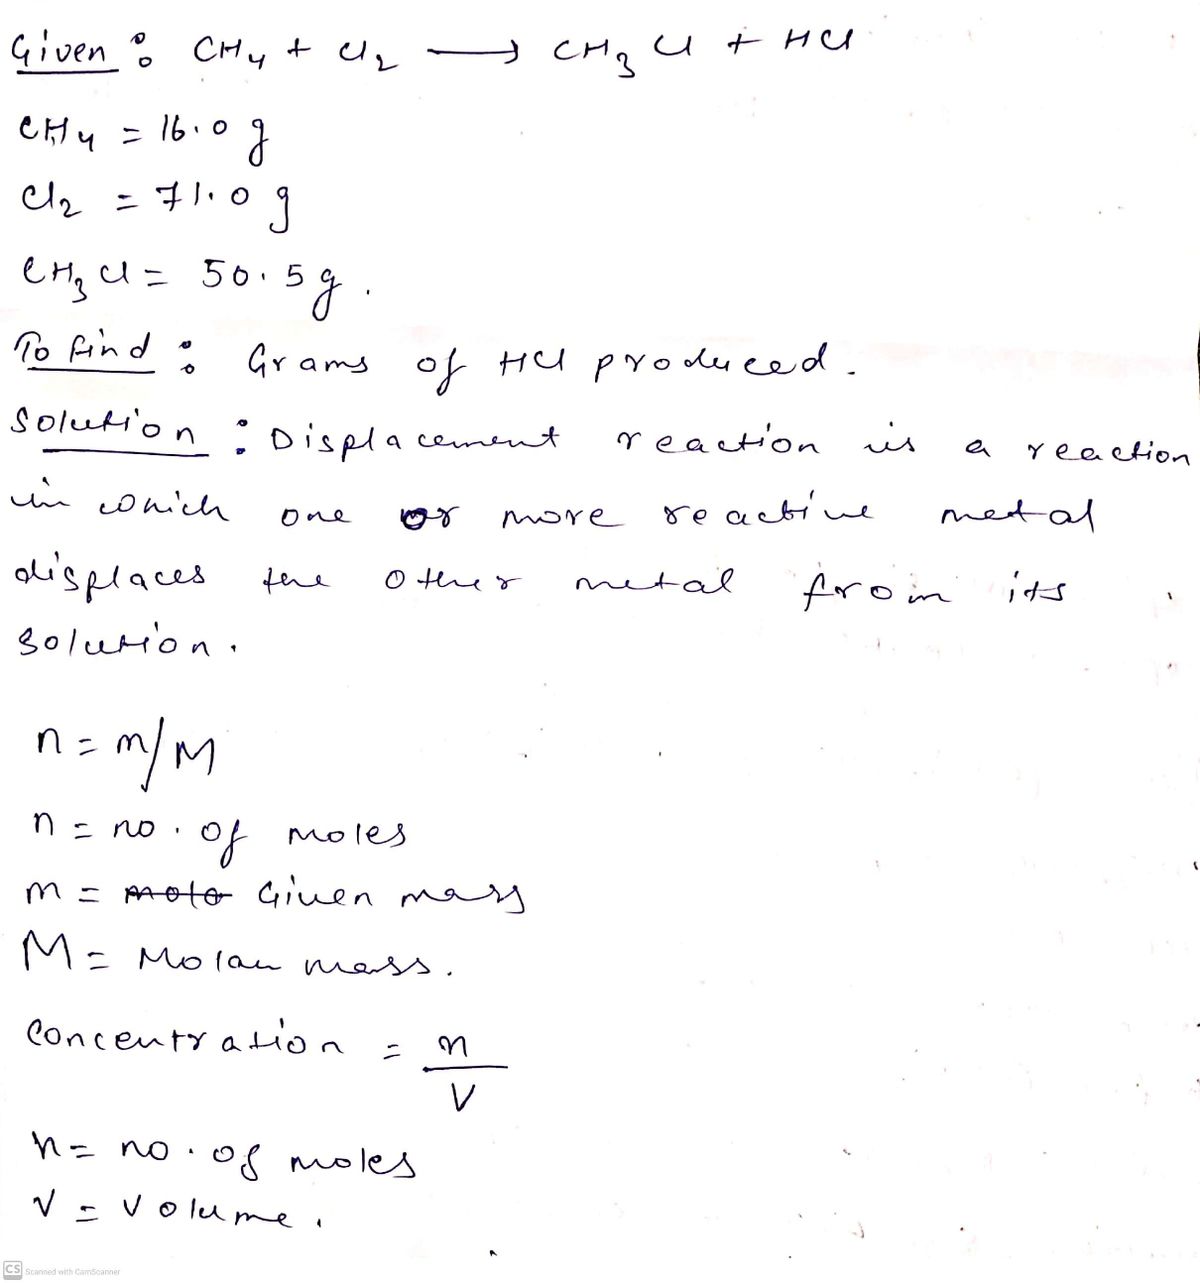 Given : CH₄ + Cl₂ ⟶ CH₃Cl + HCl
CH₄ = 16.0 g
Cl₂ = 71.0 g
CH₃Cl = 50.5 g.
To find : Grams of HCl produced.
Solution : Displacement reaction is a reaction
in which one or more reactive metal
displaces the other metal from its
solution.
n = m/M
n = no. of moles
m = ~~mole~~ Given mass
M = Molar mass.
Concentration = n
V
n = no. of moles
V = Volume.
CS Scanned with CamScanner